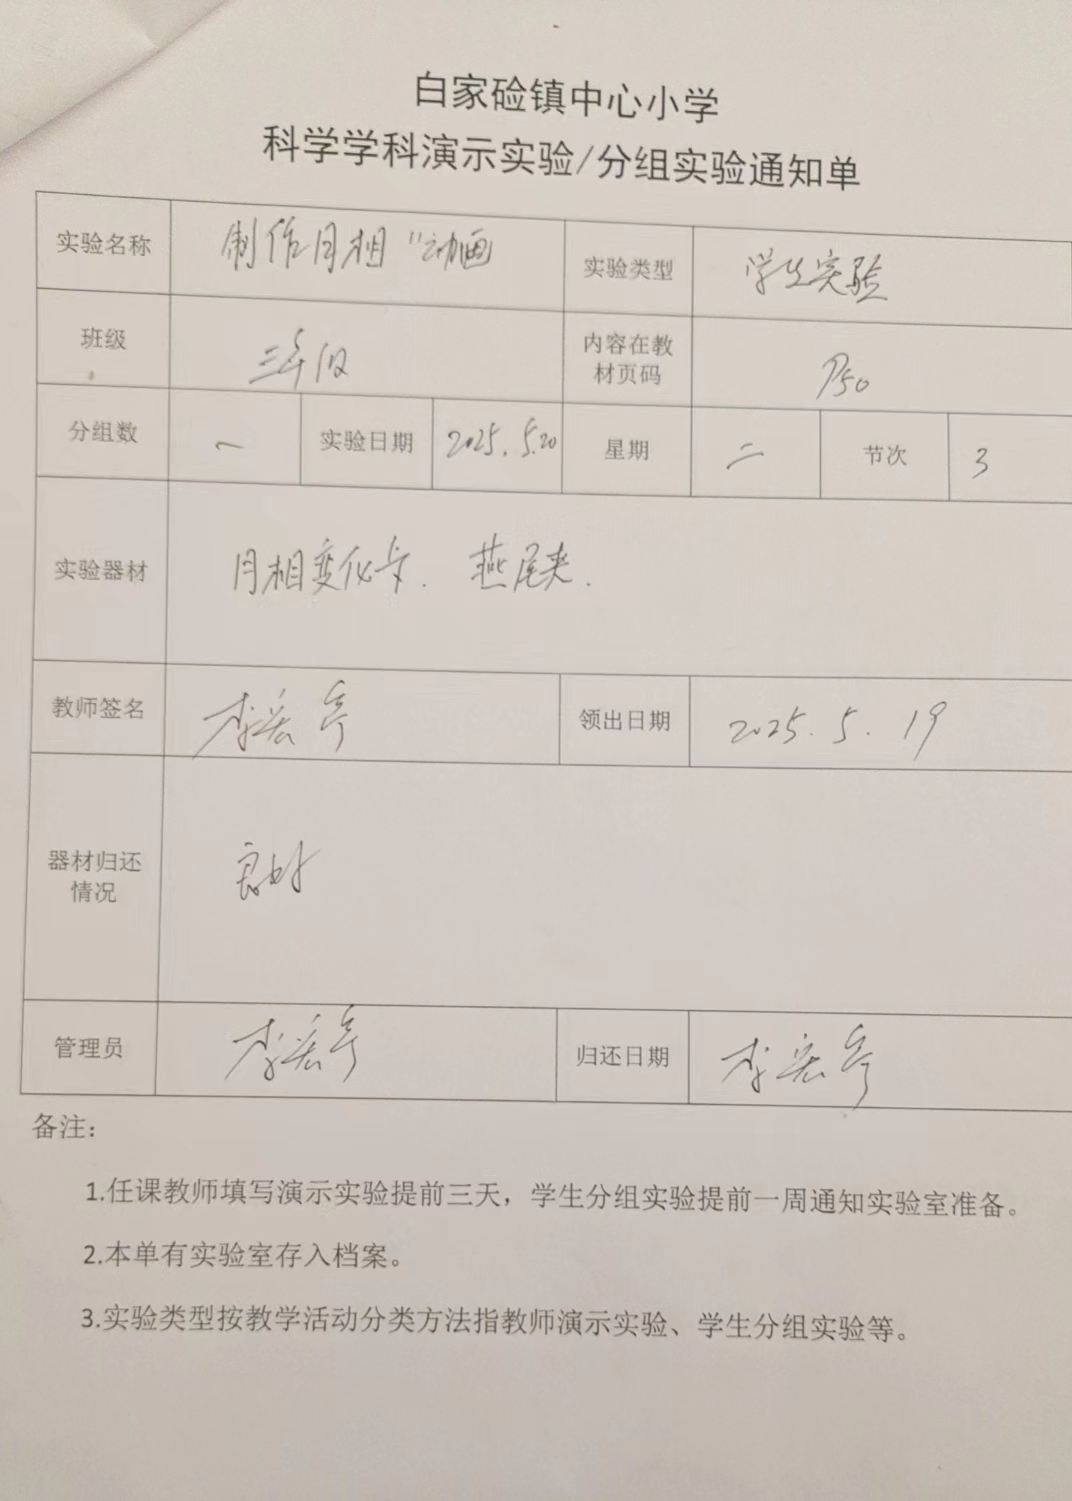 白家硷镇中心小学
科学学科演示实验/分组实验通知单
实验名称 制作月相"动画 实验类型 学生实验
班级 三年级 内容在教材页码 P50
分组数 一 实验日期 2025.5.20 星期 二 节次 3
实验器材 月相变化卡. 燕尾夹.
教师签名 李宏亭 领出日期 2025.5.19
器材归还情况 良好
管理员 李宏亭 归还日期 李宏亭
备注：
1.任课教师填写演示实验提前三天，学生分组实验提前一周通知实验室准备。
2.本单有实验室存入档案。
3.实验类型按教学活动分类方法指教师演示实验、学生分组实验等。